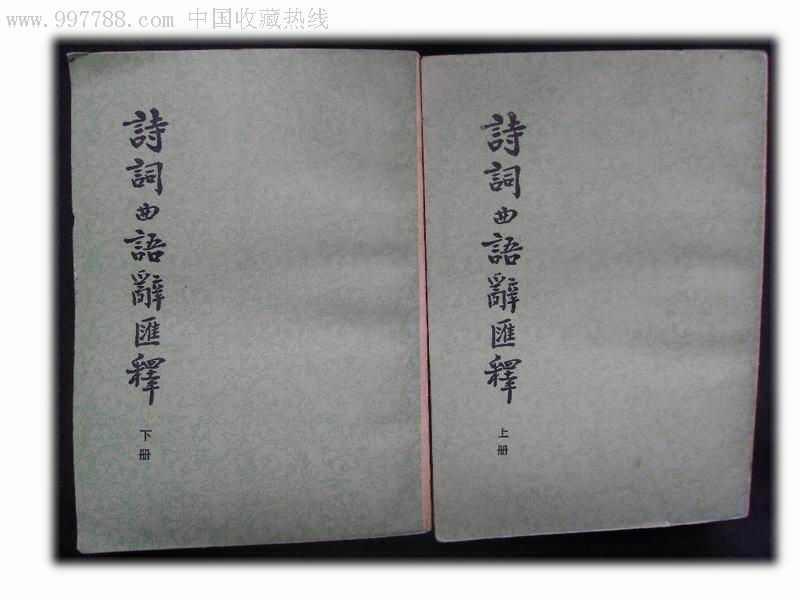 www.997788.com 中国收藏热线
詩詞曲語辭匯釋
下册
詩詞曲語辭匯釋
上册